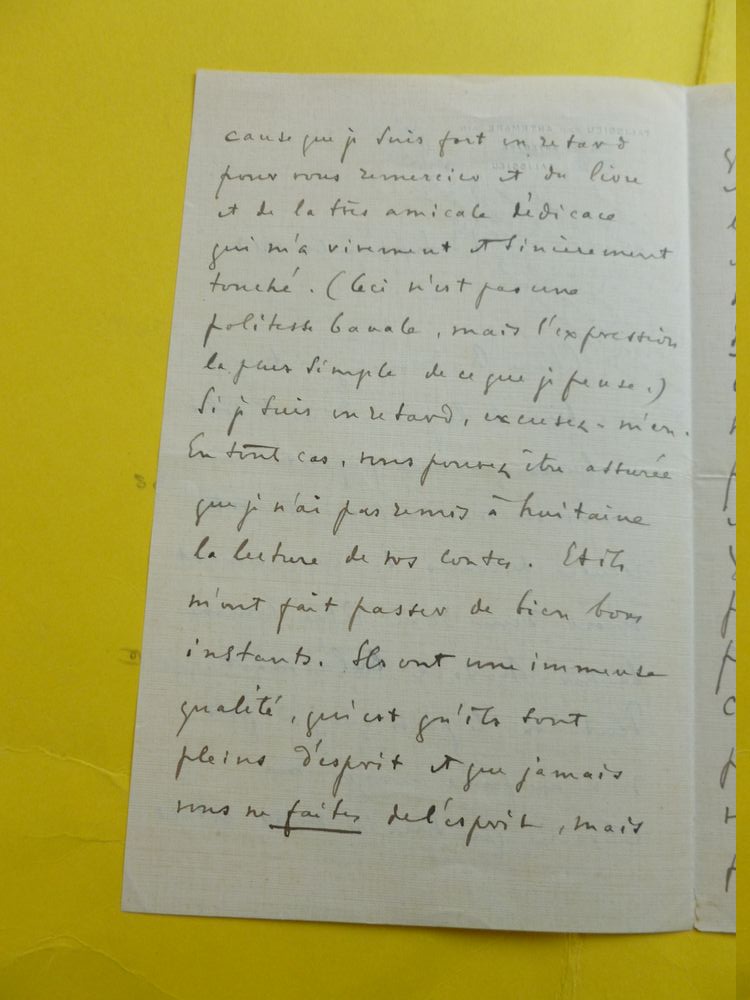 cause que je suis fort en retard
pour vous remercier et du livre
et de la très amicale dédicace
qui m'a vivement et sincèrement
touché. (Ceci n'est pas une
politesse banale, mais l'expression
la plus simple de ce que je pense.)
Si je suis en retard, excusez-m'en.
En tout cas, vous pouvez être assurée
que je n'ai pas remis à huitaine
la lecture de vos contes. Et ils
m'ont fait passer de bien bons
instants. Ils ont une immense
qualité, qui est qu'ils sont
pleins d'esprit et que jamais
vous ne faites de l'esprit, mais